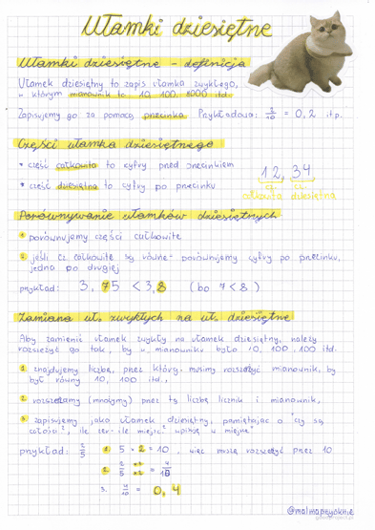 Ułamki dziesiętne
Ułamki dziesiętne - definicja
Ułamek dziesiętny to zapis ułamka zwykłego,
w którym mianownik to 10, 100, 1000 itd.
Zapisujemy go za pomocą przecinka. Przykładowo: 2/10 = 0,2 itp.
Części ułamka dziesiętnego
• część całkowita to cyfry przed przecinkiem
• część dziesiętna to cyfry po przecinku
12,34
całkowita dziesiętna
Porównywanie ułamków dziesiętnych
1 porównujemy części całkowite
2 jeśli cz. całkowite są równe - porównujemy cyfry po przecinku,
jedna po drugiej
przykład: 3,75 < 3,8 (bo 7 < 8)
Zamiana uł. zwykłych na uł. dziesiętne
Aby zamienić ułamek zwykły na ułamek dziesiętny, należy
rozszerzyć go tak, by w mianowniku było 10, 100, 100 itd.
1. znajdujemy liczbę, przez którą musimy rozszerzyć mianownik, by
był równy 10, 100 itd.,
2. rozszerzamy (mnożymy) przez tą liczbę licznik i mianownik,
3. zapisujemy jako ułamek dziesiętny, pamiętając o
przykład: 2/5 1 5 • 2 = 10 , więc muszę rozszerzyć przez 10
2. 2/5 •2/•2 = 4/10
3. 4/10 = 0,4